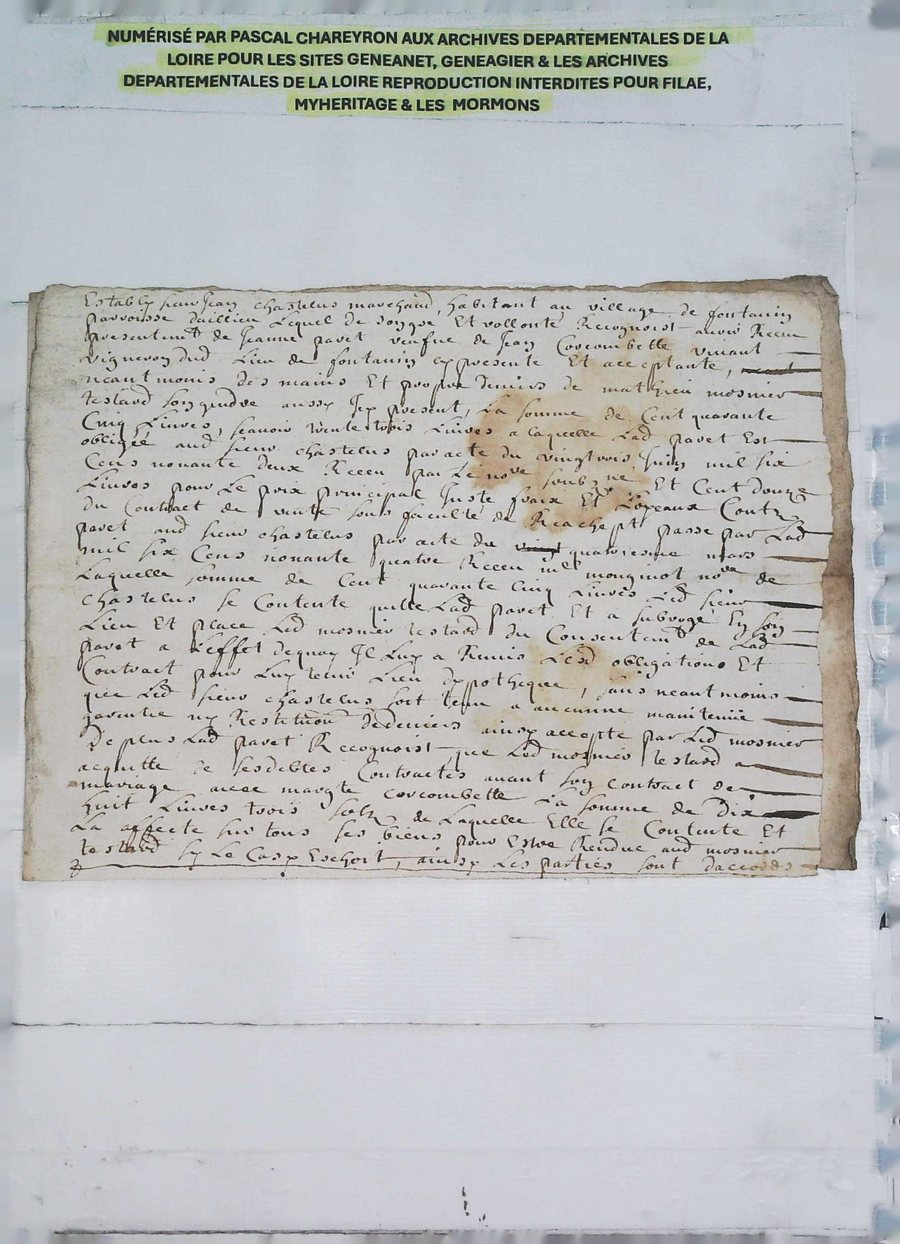 NUMÉRISÉ PAR PASCAL CHAREYRON AUX ARCHIVES DEPARTEMENTALES DE LA
LOIRE POUR LES SITES GENEANET, GENEAGIER & LES ARCHIVES
DEPARTEMENTALES DE LA LOIRE REPRODUCTION INTERDITES POUR FILAE,
MYHERITAGE & LES MORMONS
Estably sieur Jean chastelus marchand, habitant au village de fontanin
parroisse daillieu Lequel de son gre Et vollonte Recognoist avoir Receu
presentemt de Jeanne pavet veufve de Jean Corcombette vivant
vigneron dud Lieu de fontanin cy presente Et acceptante,
neantmoins des mains Et propre deniers de mathieu mosnier
testard son gendre aussy Icy present, La somme de Cent quarante
Cinq Livres, scavoir trente trois Livres a laquelle Lad pavet Est
obligée aud sieur chastelus par acte du vingtrois Juin mil six
Cens nonante deux Receu par Le nore soubzne Et Cent douze
Livres pour Le prix principal Juste fraix Et Loyeaux Contz
du Contract de vente sous faculté de Reachept passe par Lad
pavet aud sieur chastelus par acte du quatriesme mars
mil six Cens nonante quatre Receu me mongirot nore de
Laquelle somme de Cent quarante Cinq Livres Led sieur
chastelus se Contente quitte Lad pavet Et a subroge En son
Lieu Et place Led mosnier testard du Consentemt de Lad
pavet a L'effet dequoy Il Luy a Remis Lesd obligations Et
Contract pour Luy tenir Lieu dypotheque, sans neantmoins
que Led sieur chastelus soit tenu a aucunne maintenüe
garentie ny Restitution de deniers ainsy accepte par Led mosnier
De plus Lad pavet Recognoist que Led mosnier testard a
acquitte de ses debtes Contractes avant son contract de
mariage avec margte corcombette La somme de Dix
huit Livres trois solz de Laquelle Elle se Contente Et
La affecte sur tous ses biens pour Estre Rendue aud mosnier
testard sy Le Cas y Eschoit, ainsy Les parties sont daccordz